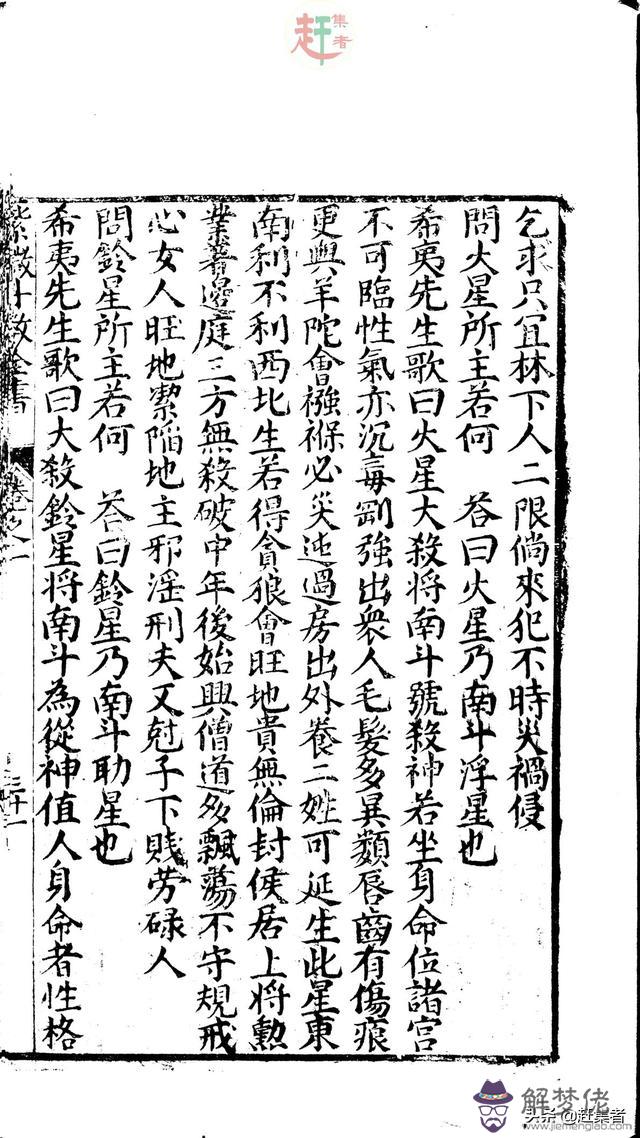 赶集者
乞求只宜林下人二限倘來犯不時災禍侵
問火星所主若何　荅曰火星乃南斗浮星也
希夷先生歌曰火星大殺將南斗號殺神若坐身命位諸宮
不可臨性氣亦沉毒剛強出衆人毛髮多異類唇齒有傷痕
更與羊陀會襁褓必災迍過房出外養二姓可延生此星東
南利不利西北生若得貪狼會旺地貴無倫封侯居上將勲
業著邊庭三方無殺破中年後始興僧道多飄蕩不守規戒
心女人旺地潔陷地主邪淫刑夫又尅子下賎劳碌人
問鈴星所主若何　荅曰鈴星乃南斗助星也
希夷先生歌曰大殺鈴星将南斗為從神值人身命者性格
紫微斗数全書　卷之一　三十一
解梦佬
头条@赶集者
www.jiemenglab.com